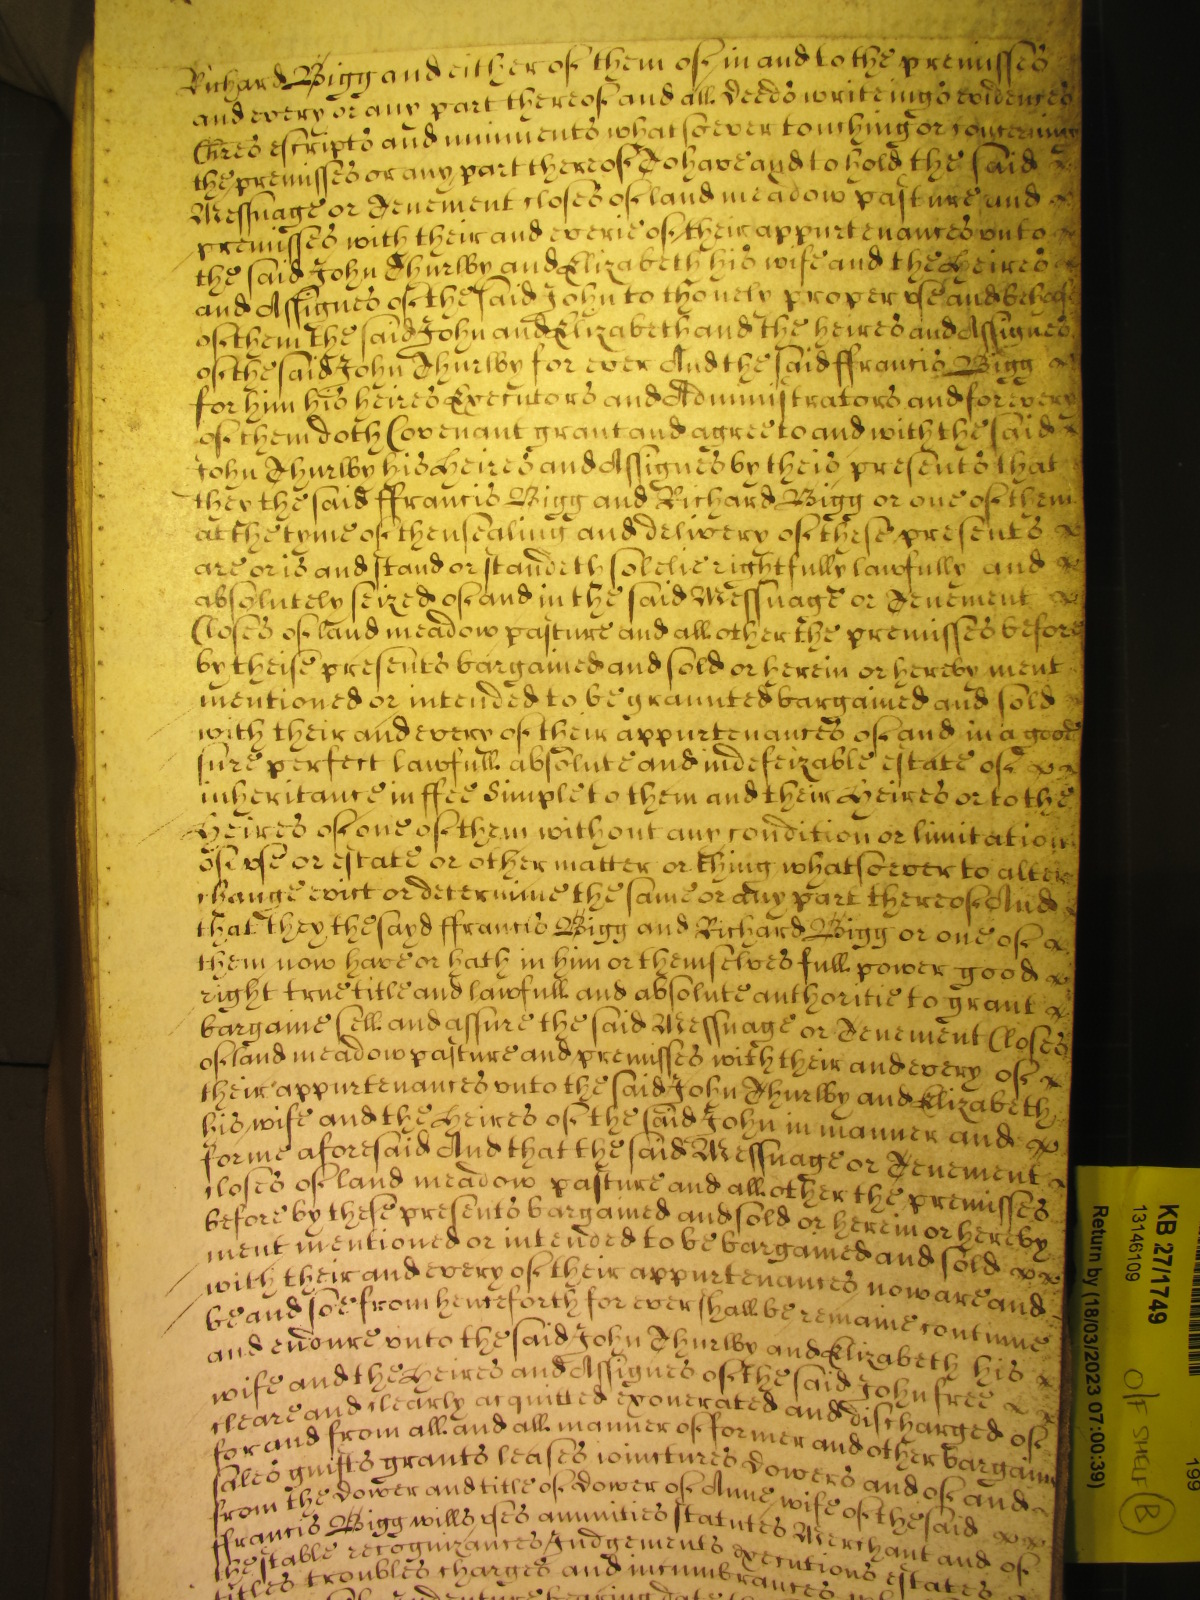 Richard Bigg and either of them of in and to the premisses
and every or any part thereof and all deeds writeings evidences
Chres escripts and minuments whatsoever touching or concerning
the premisses or any part thereof To have and to hold the said
Messuage or Tenement closes of land meadow pasture and
premisses with their and everie of their appurtenances vnto
the said John Thurlby and Elizabeth his wife and the Heires
and Assignes of the said John to thonely proper vse and behoofe
of them the said John and Elizabeth and the heires and Assignes
of the said John Thurlby for ever And the said ffrancis Bigg
for him his heires Executors and Administrators and for every
of them doth Covenant grant and agree to and with the said
John Thurlby his Heires and Assignes by theis presents that
they the said ffrancis Bigg and Richard Bigg or one of them
at the tyme of thensealing and delivery of these presents
are or is and stand or standeth solelie rightfully lawfully and
absolutely seized of and in the said Messuage or Tenement
Closes of land meadow pasture and all other the premisses before
by theise presents bargained and sold or herein or hereby ment
mentioned or intended to be graunted bargained and sold
with their and every of their appurtenances of and in a good
sure perfect lawfull absolute and indefeizable estate of
inheritance in ffee Simple to them and their Heires or to the
Heires of one of them without any condition or limitation
of vse or estate or other matter or thing whatsoever to alter
change evict or determine the same or any part thereof And
that they the sayd ffrancis Bigg and Richard Bigg or one of
them now have or hath in him or themselves full power good
right true title and lawfull and absolute authoritie to grant
bargaine sell and assure the said Messuage or Tenement Closes
of land meadow pasture and premisses with their and every of
their appurtenances vnto the said John Thurlby and Elizabeth
his wife and the Heires of the said John in manner and
forme aforesaid And that the said Messuage or Tenement
closes of land meadow pasture and all other the premisses
before by these presents bargained and sold or herein or hereby
ment mentioned or intended to be bargained and sold
with their and every of their appurtenances now are and
be and soe from henceforth for ever shall be remaine continue
and endure vnto the said John Thurlby and Elizabeth his
wife and the Heires and Assignes of the said John free
cleare and clearly acquitted exonerated and discharged of
for and from all and all manner of former and other bargains
sales guifts grants leases iointures Dowers and of and
from the Dower and title of Dower of Anne wife of the said
ffrancis Bigg wills vses annuities statutes Merchant and of
the stable recognizances Judgements executions estates
titles troubles charges and incumbrances
Indenture bearing date
KB 27/1749
13146109
Return by (18/03/2023 07:00:39)
Off SHELF (B)
199